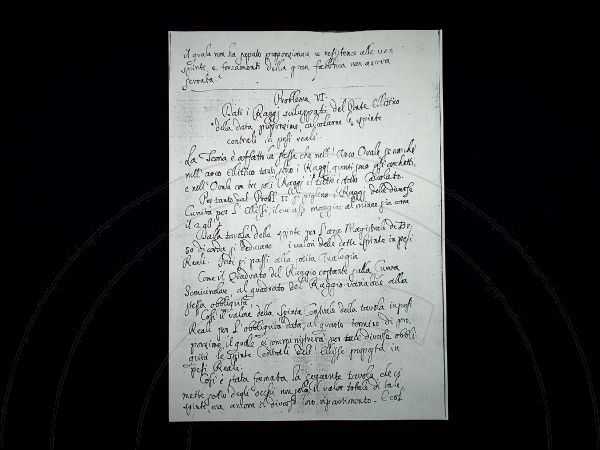 il quale non ha saputo proporzionare le resistenze alle varie
spinte, e sforzamenti della gran fabbrica non ancora
serrata.
Problema VI.
Dati i Raggi sviluppati del Ponte Ellittico
della data proporzione, calcolarne le spinte
centrali in pesi reali.
La Teoria è affatto la stessa che nell'Arco Ovale, se non che
nell'arco ellittico tanti sono i Raggi quanti sono gli archetti,
e nell'Ovale con tre soli Raggi il tutto è stato calcolato.
Pertanto dal Probl. II si piglino i Raggi delle diverse
Curvità per l'Ellissi, il cui asse maggiore al minore sia come
il 2 all' 1
Dalla tavola delle spinte per l'area Magistrale di
so di corda si deducano i valori delle dette spinte in pesi
Reali. Indi si passi alla solita Analogia
Come il Quadrato del Raggio costante sulla Curva
Semicircolare al quadrato del Raggio variabile alla
stessa obbliquità
Così il valore della Spinta Centrale della tavola in pesi
Reali per l'obbliquità data, al quarto termine di pro
porzione, il quale ci somministrerà per tale diverse obbli
quità le spinte Centrali dell'Ellisse proposta in
pesi Reali.
Così è stata formata la seguente tavola che ci
mette sotto degli occhi non solo il valor totale di tale
spinte ma ancora il diverso loro ripartimento. E così